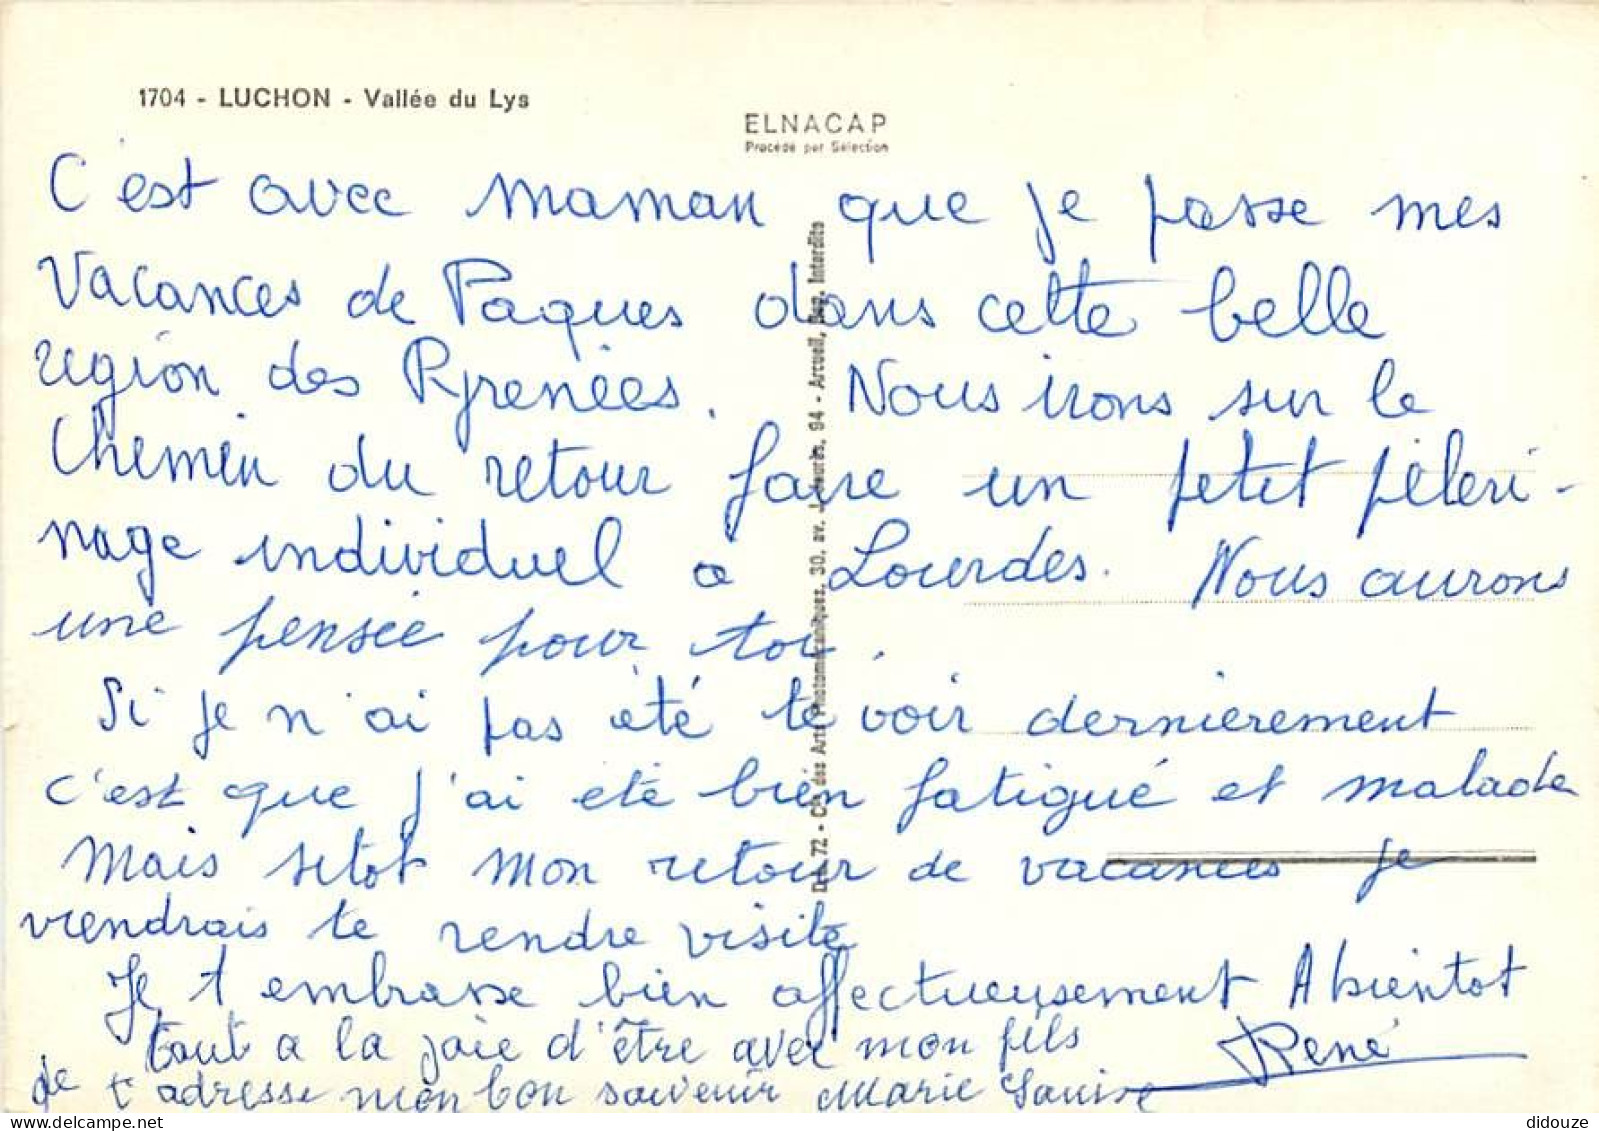 1704 - LUCHON - Vallée du Lys
ELNACAP
Procédé par Sélection
C'est avec maman que je passe mes
Vacances de Paques dans cette belle
region des Pyrenées. Nous irons sur le
Chemin du retour faire un petit péleri-
nage individuel a Lourdes. Nous aurons
une pensée pour toi.
Si je n'ai pas été te voir dernierement
c'est que j'ai été bien fatigué et malade
Mais sitot mon retour de vacances je
viendrais te rendre visite
Je t embrasse bien affectueusement A bientot
René
tout a la joie d'être avec mon fils
je t'adresse mon bon souvenir Marie Louise
Dép. 72 - Cie des Arts Photomécaniques, 30, av. J.-Jaurès, 94 - Arcueil, Rep. Interdite
delcampe.net
didouze